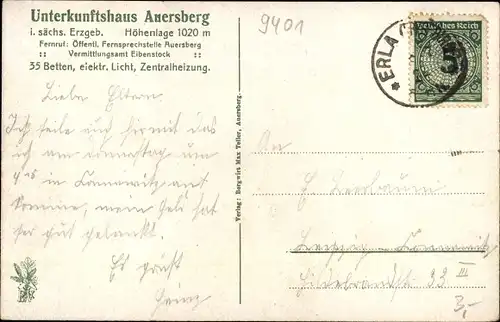 Unterkunftshaus Auersberg
i. sächs. Erzgeb. Höhenlage 1020 m
Fernruf: Öffentl. Fernsprechstelle Auersberg
:: Vermittlungsamt Eibenstock ::
35 Betten, elektr. Licht, Zentralheizung.
9401
ERLA
Deutsches Reich
Liebe Eltern.
Ich teile euch hiermit das
ich am Sonnstag um
4 15 in Connewitz ank
komme, mein Geld hat
sehr gut gelangt.
Es grüßt
Heinz
Verlag: Bergwirt Max Teller, Auersberg.
An
Leipzig - Connewitz
Hildebrandstr 33 III
3,-